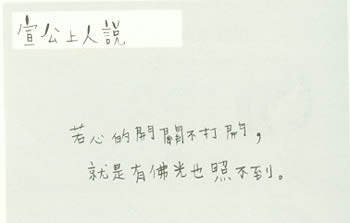 宣公上人說
若心的開關不打開，
就是有佛光也照不到。